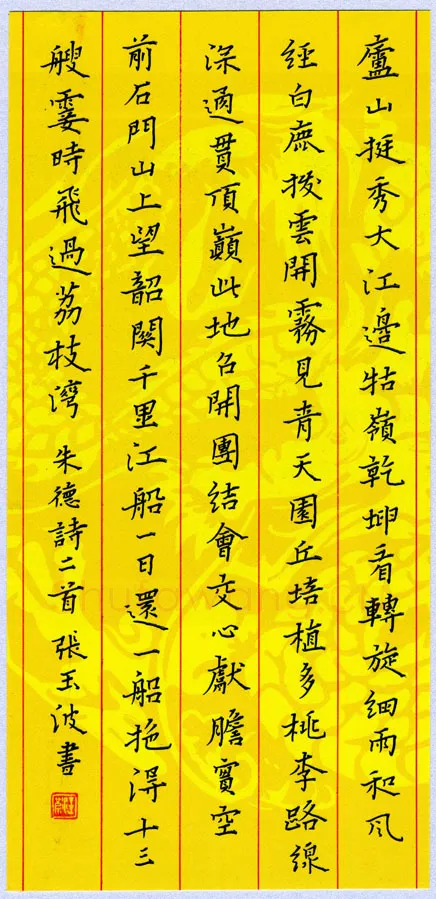 廬山挺秀大江邊牯嶺乾坤看轉旋細雨和風
經白鹿撥雲開霧見青天園丘培植多桃李路線
深通貫頂巔此地召開團結會交心獻膽實空
前石門山上望韶關千里江船一日還一船拖得十三
艘霎時飛過荔枝灣 朱德詩二首 張玉波書